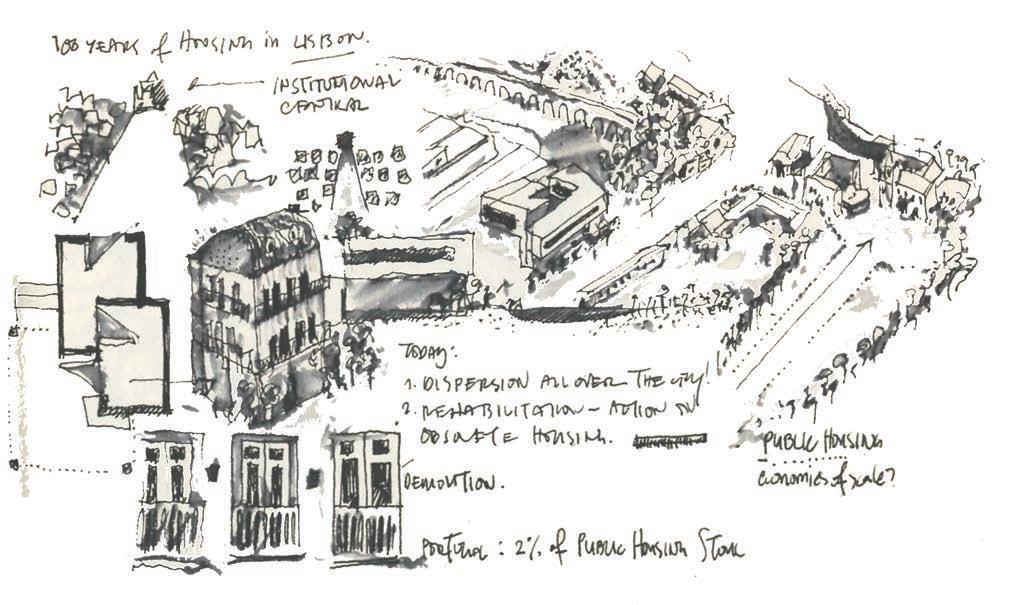 100 YEARS of HOUSING in LISBON.
INSTITUTIONAL
CENTRAL
TODAY:
1. DISPERSION ALL OVER THE CITY!
2. REHABILITATION - ACTION ON
OBSOLETE HOUSING.
DEMOLITION.
PUBLIC HOUSING
economies of scale?
PORTUGAL : 2% of PUBLIC HOUSING STOCK